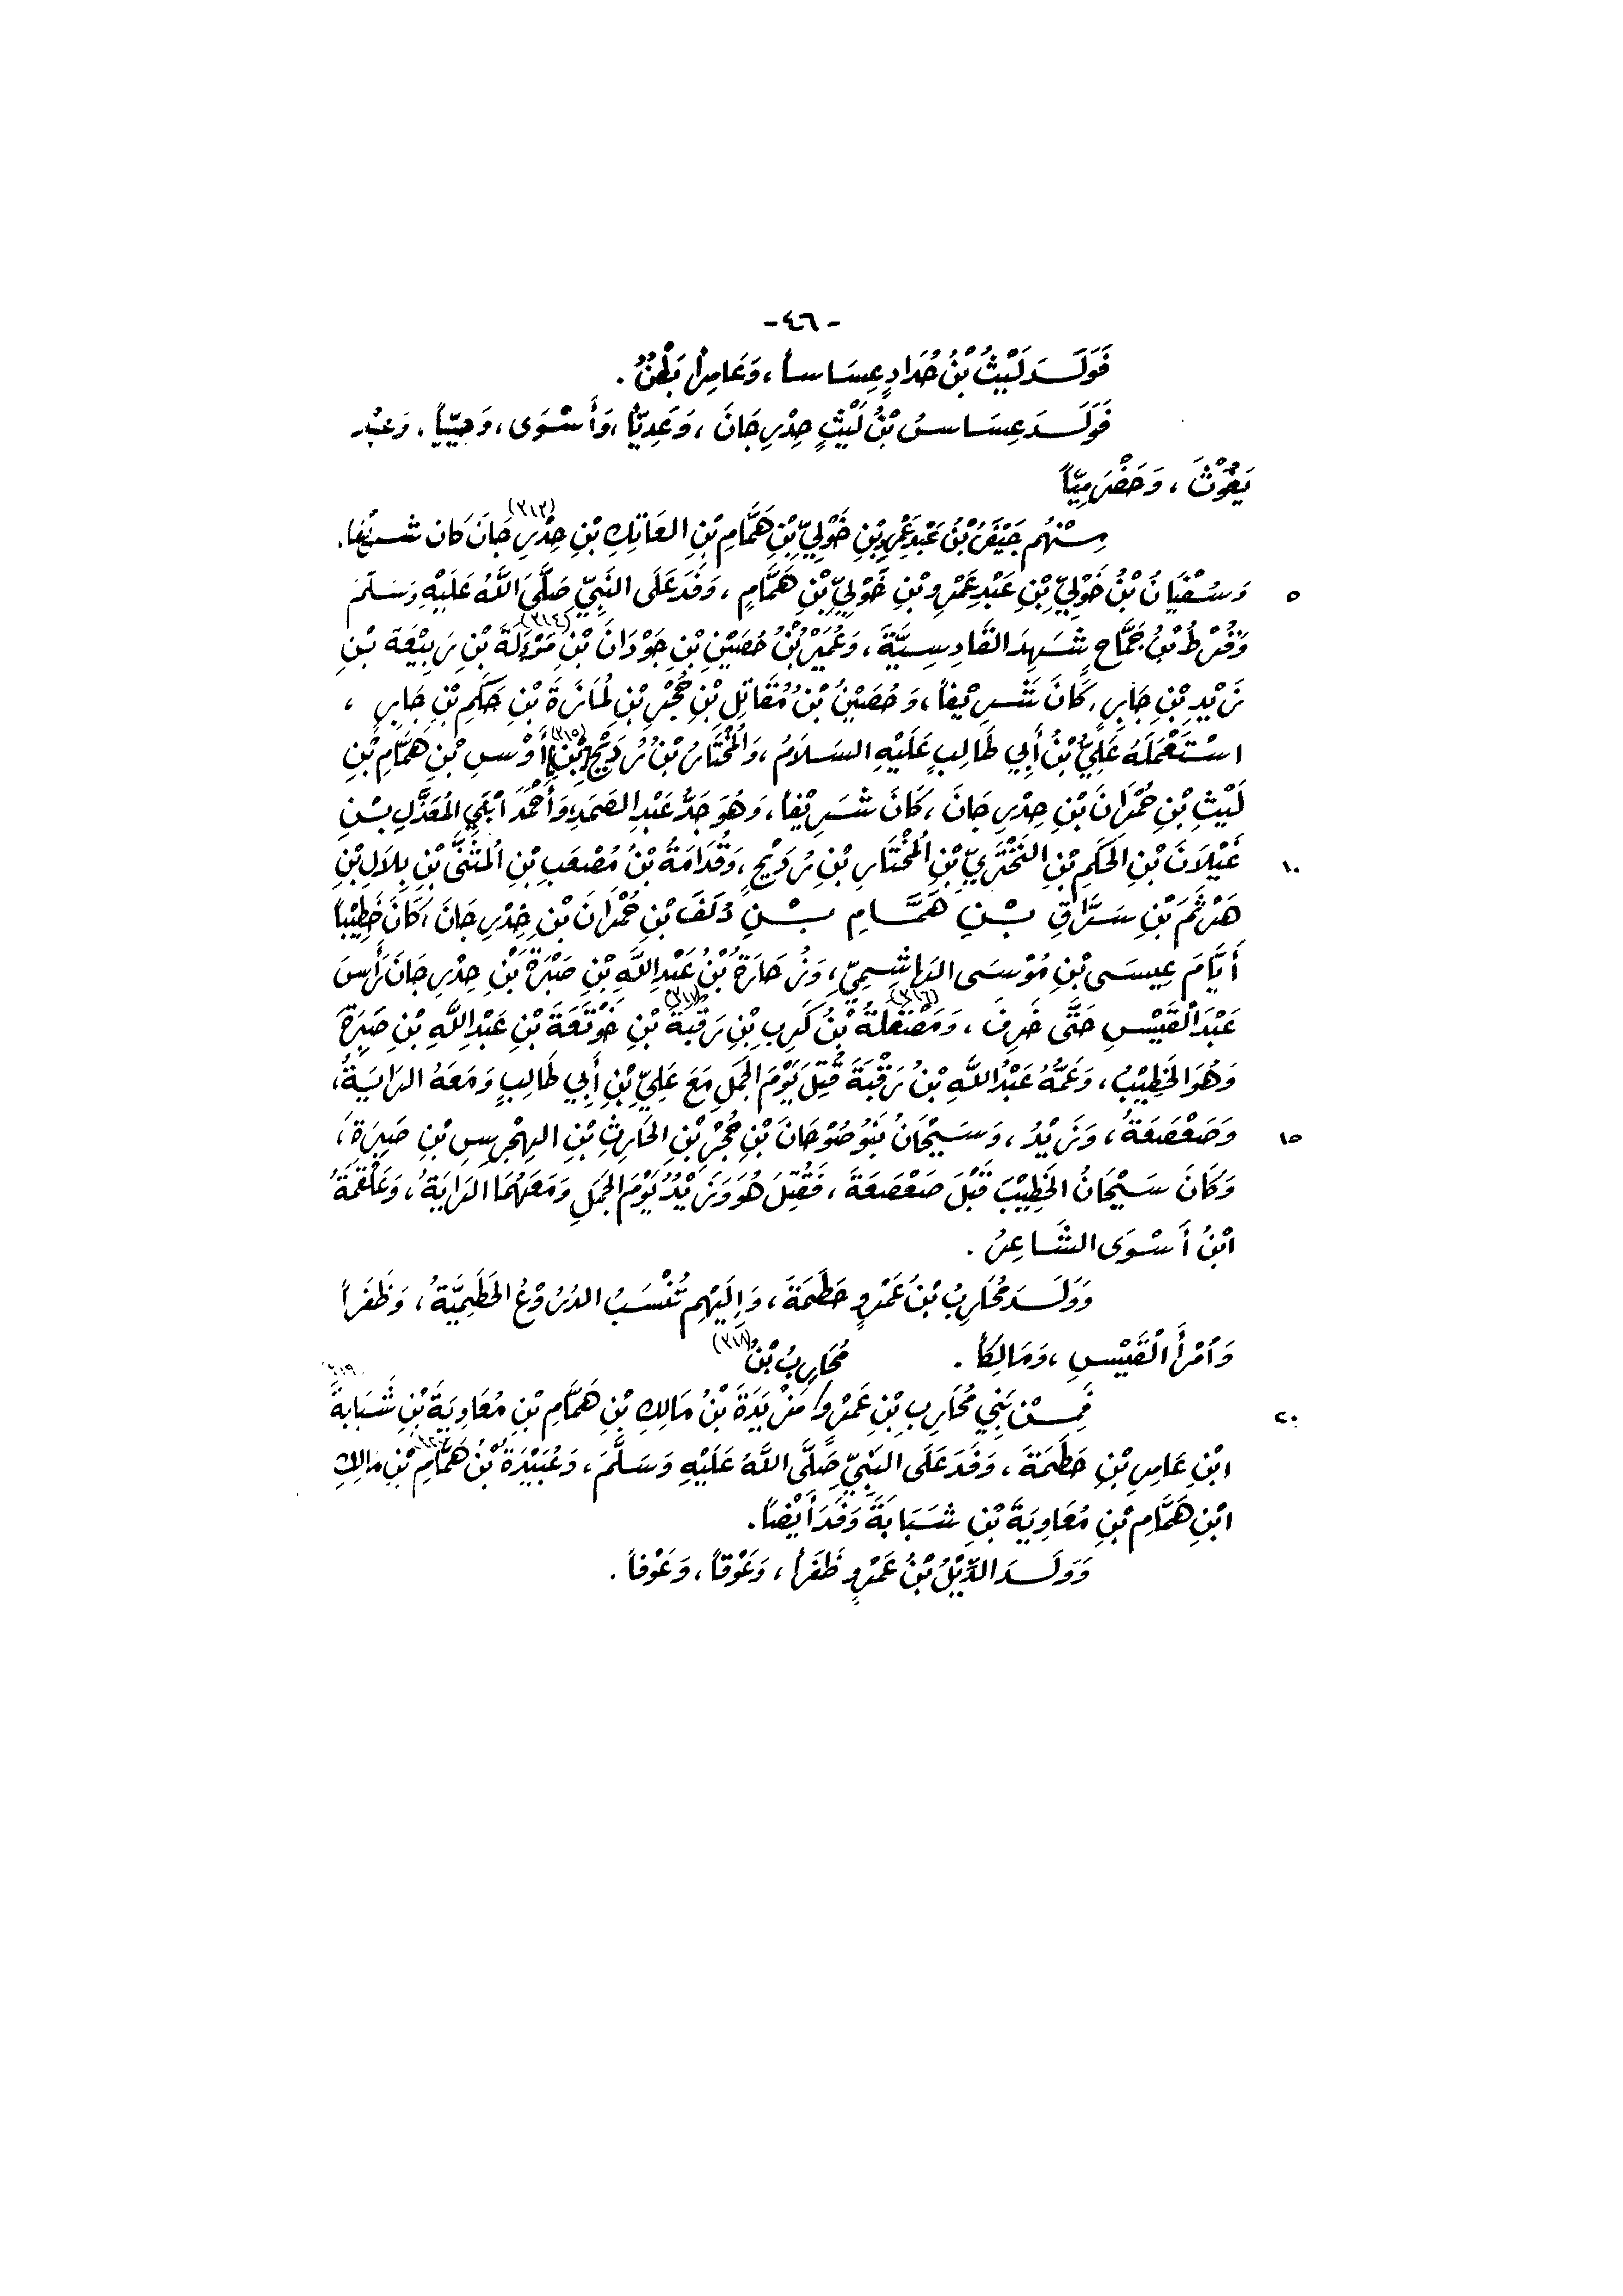 -٤٦-
فَوَلَدَ لَيْثُ بْنُ حُدَادٍ عِسَاساً، وَعَامِراً بَطْنٌ.
فَوَلَدَ عِسَاسُ بْنُ لَيْثٍ حِدْرِجَانَ، وَعَدِيّاً، وَأَسْوَى، وَحِيّيّاً. وَعَبْدَ
يَغُوْثَ، وَحَضْرَمِيّاً
مِنْهُم جَيْفَرُ بْنُ عَبْدِ عَمْرِو بْنِ خَوْلِيِّ بْنِ هَمَّامِ بْنِ العَاتِكِ بْنِ حِدْرِجَانَ (٣١٣) كَانَ شَرِيْفا.
٥ وَسُفْيَانُ بْنُ خَوْلِيِّ بْنِ عَبْدِ عَمْرِو بْنِ خَوْلِيِّ بْنِ هَمَّامٍ، وَفَدَ عَلَى النَّبِيِّ صَلَّى اللَّهُ عَلَيْهِ وَسَلَّمَ
وَقُرْطُ بْنُ جَمَّاحٍ شَهِدَ القَادِسِيَّةَ، وَعُمَيْرُ بْنُ حُصَيْنِ بْنِ جَوْدَانَ بْنِ مَوْءَلَةَ (٣١٤) بْنِ رَبِيْعَةَ بْنِ
زَيْدِ بْنِ جَابِرٍ، كَانَ شَرِيْفاً، وَحُصَيْنُ بْنُ مُقَاتِلِ بْنِ حُجْرِ بْنِ لُمَازَةَ بْنِ حَكَمِ بْنِ جَابِرٍ،
اسْتَعْمَلَهُ عَلِيُّ بْنُ أَبِي طَالِبٍ عَلَيْهِ السَلَامُ، وَالمُخْتَارُ بْنُ رُدَيْحِ (٣١٥) بْنِ أَوْسِ بْنِ هَمَّامِ بْنِ
لَيْثِ بْنِ حُمْرَانَ بْنِ حِدْرِجَانَ، كَانَ شَرِيْفاً، وَهُوَ جَدُّ عَبْدِ الصَمَدِ وَأَحْمَدَ ابْنَيِ المُعَذَّلِ بْنِ
١٠ غَيْلَانَ بْنِ الحَكَمِ بْنِ البَخْتَرِيِّ بْنِ المُخْتَارِ بْنِ رُدَيْحٍ، وَقُدَامَةُ بْنُ مُصْعَبِ بْنِ المُثَنَّى بْنِ بِلَالِ بْنِ
هَرْثَمَ بْنِ سَرَّاقِ بْنِ هَمَّامِ بْنِ دُلَفَ بْنِ حُمْرَانَ بْنِ حِدْرِجَانَ، كَانَ خَطِيْباً
أَيَّامَ عِيسَى بْنِ مُوْسَى الهَاشِمِيِّ، وَزُحَارَةُ بْنُ عَبْدِ اللَّهِ بْنِ صَبْرَةَ بْنِ حِدْرِجَانَ رَأَسَ
عَبْدَ القَيْسِ حَتَّى خَرِفَ، وَمَصْقَلَةُ (٣١٦) بْنُ كَرِبِ بْنِ رَقَبَةَ (٣١٧) بْنِ خَوْتَعَةَ بْنِ عَبْدِ اللَّهِ بْنِ صَبِرَةَ
وَهُوَ الخَطِيْبُ، وَعَمُّهُ عَبْدُ اللَّهِ بْنُ رَقَبَةَ قُتِلَ يَوْمَ الجَمَلِ مَعَ عَلِيِّ بْنِ أَبِي طَالِبٍ وَمَعَهُ الرَايَةُ،
١٥ وَصَعْصَعَةُ، وَزَيْدُ، وَسَيْحَانُ بَنُو صُوْحَانَ بْنِ حُجْرِ بْنِ الحَارِثِ بْنِ الهِجْرِسِ بْنِ صَبِرَةَ،
وَكَانَ سَيْحَانُ الخَطِيْبَ قَبْلَ صَعْصَعَةَ، فَقُتِلَ هُوَ وَزَيْدُ يَوْمَ الجَمَلِ وَمَعَهُمَا الرَايَةُ، وَعَلْقَمَةُ
ابْنُ أَسْوَى الشَّاعِرُ.
وَوَلَدَ مُحَارِبُ بْنُ عَمْرٍو حَطَمَةَ، وَإِلَيْهِم تُنْسَبُ الدُرُوْعُ الحَطَمِيَّةُ، وَظَفَراً
وَامْرَأَ القَيْسِ، وَمَالِكاً. مُحَارِبُ بْنُ (٣١٨)
٢٠ فَمِنْ بَنِي مُحَارِبِ بْنِ عَمْرٍو/ مَزْيَدَةَ بْنُ مَالِكِ بْنِ هَمَّامِ بْنِ مُعَاوِيَةَ بْنِ شَبَابَةَ
ابْنِ عَامِرِ بْنِ حَطَمَةَ، وَفَدَ عَلَى النَّبِيِّ صَلَّى اللَّهُ عَلَيْهِ وَسَلَّمَ، وَعُبَيْدَةُ بْنُ هَمَّامِ بْنِ مَالِكِ
ابْنِ هَمَّامِ بْنِ مُعَاوِيَةَ بْنِ شَبَابَةَ وَفَدَ أَيْضاً.
وَوَلَدَ الدِّيْلُ بْنُ عَمْرٍو ظَفَراً، وَعَوْقاً، وَعَوْفاً.